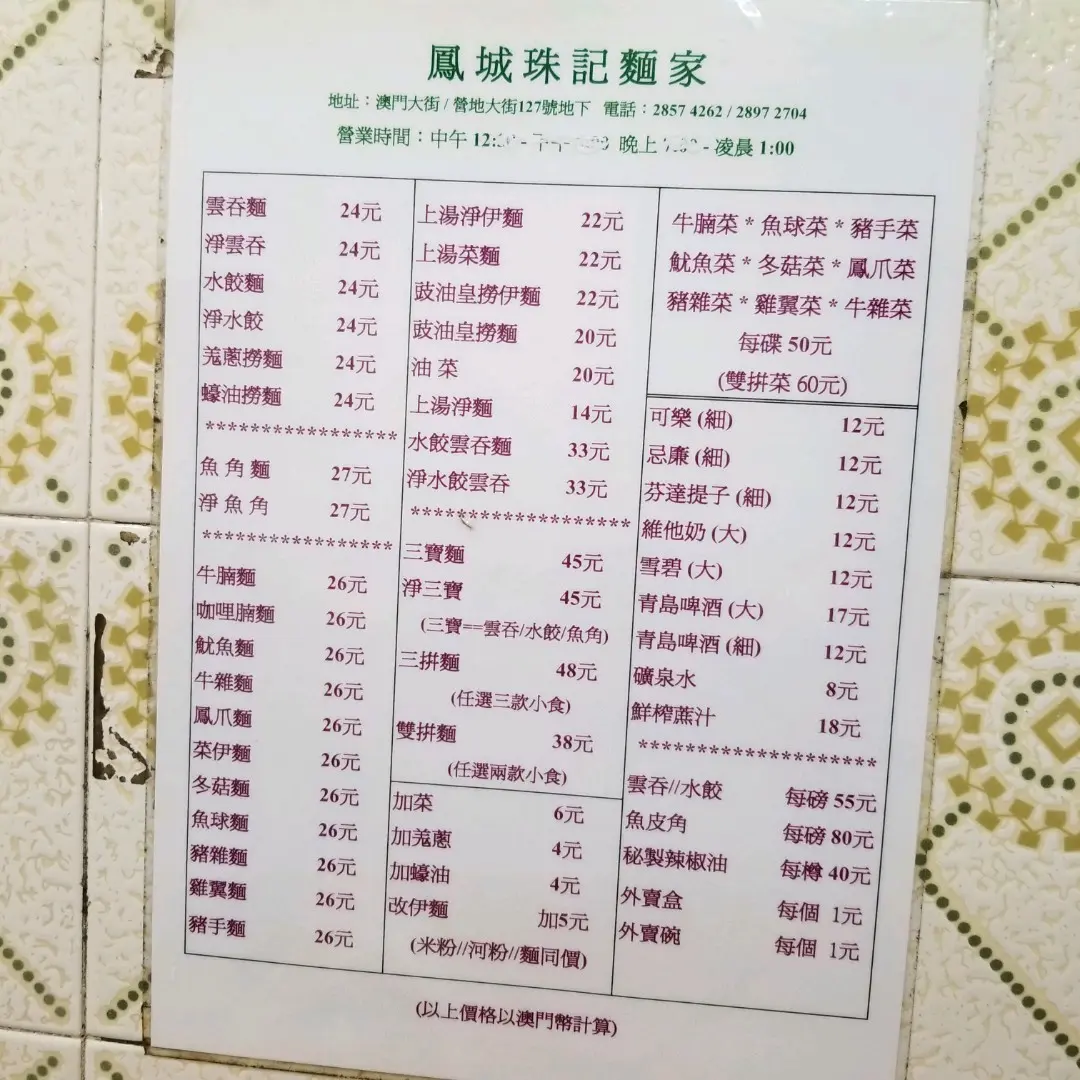 鳳城珠記麵家
地址：澳門大街 / 營地大街127號地下 電話：2857 4262 / 2897 2704
營業時間：中午 12: - 晚上 - 凌晨 1:00
雲吞麵 24元
淨雲吞 24元
水餃麵 24元
淨水餃 24元
羗蔥撈麵 24元
蠔油撈麵 24元
*****************
魚角麵 27元
淨魚角 27元
*****************
牛腩麵 26元
咖哩腩麵 26元
魷魚麵 26元
牛雜麵 26元
鳳爪麵 26元
菜伊麵 26元
冬菇麵 26元
魚球麵 26元
豬雜麵 26元
雞翼麵 26元
豬手麵 26元
上湯淨伊麵 22元
上湯菜麵 22元
豉油皇撈伊麵 22元
豉油皇撈麵 20元
油菜 20元
上湯淨麵 14元
水餃雲吞麵 33元
淨水餃雲吞 33元
*******************
三寶麵 45元
淨三寶 45元
(三寶==雲吞/水餃/魚角)
三拚麵 48元
(任選三款小食)
雙拚麵 38元
(任選兩款小食)
加菜 6元
加羗蔥 4元
加蠔油 4元
改伊麵 加5元
(米粉//河粉//麵同價)
牛腩菜 * 魚球菜 * 豬手菜
魷魚菜 * 冬菇菜 * 鳳爪菜
豬雜菜 * 雞翼菜 * 牛雜菜
每碟 50元
(雙拚菜 60元)
可樂 (細) 12元
忌廉 (細) 12元
芬達提子 (細) 12元
維他奶 (大) 12元
雪碧 (大) 12元
青島啤酒 (大) 17元
青島啤酒 (細) 12元
礦泉水 8元
鮮榨蔗汁 18元
********************
雲吞//水餃 每磅 55元
魚皮角 每磅 80元
秘製辣椒油 每樽 40元
外賣盒 每個 1元
外賣碗 每個 1元
(以上價格以澳門幣計算)